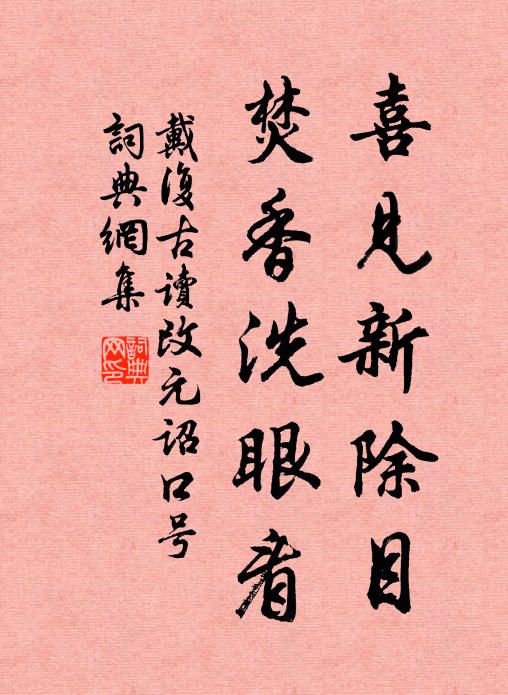 喜見新除目
焚香洗眼看
戴復古讀改元詔口号
詞典網集
詞典網印